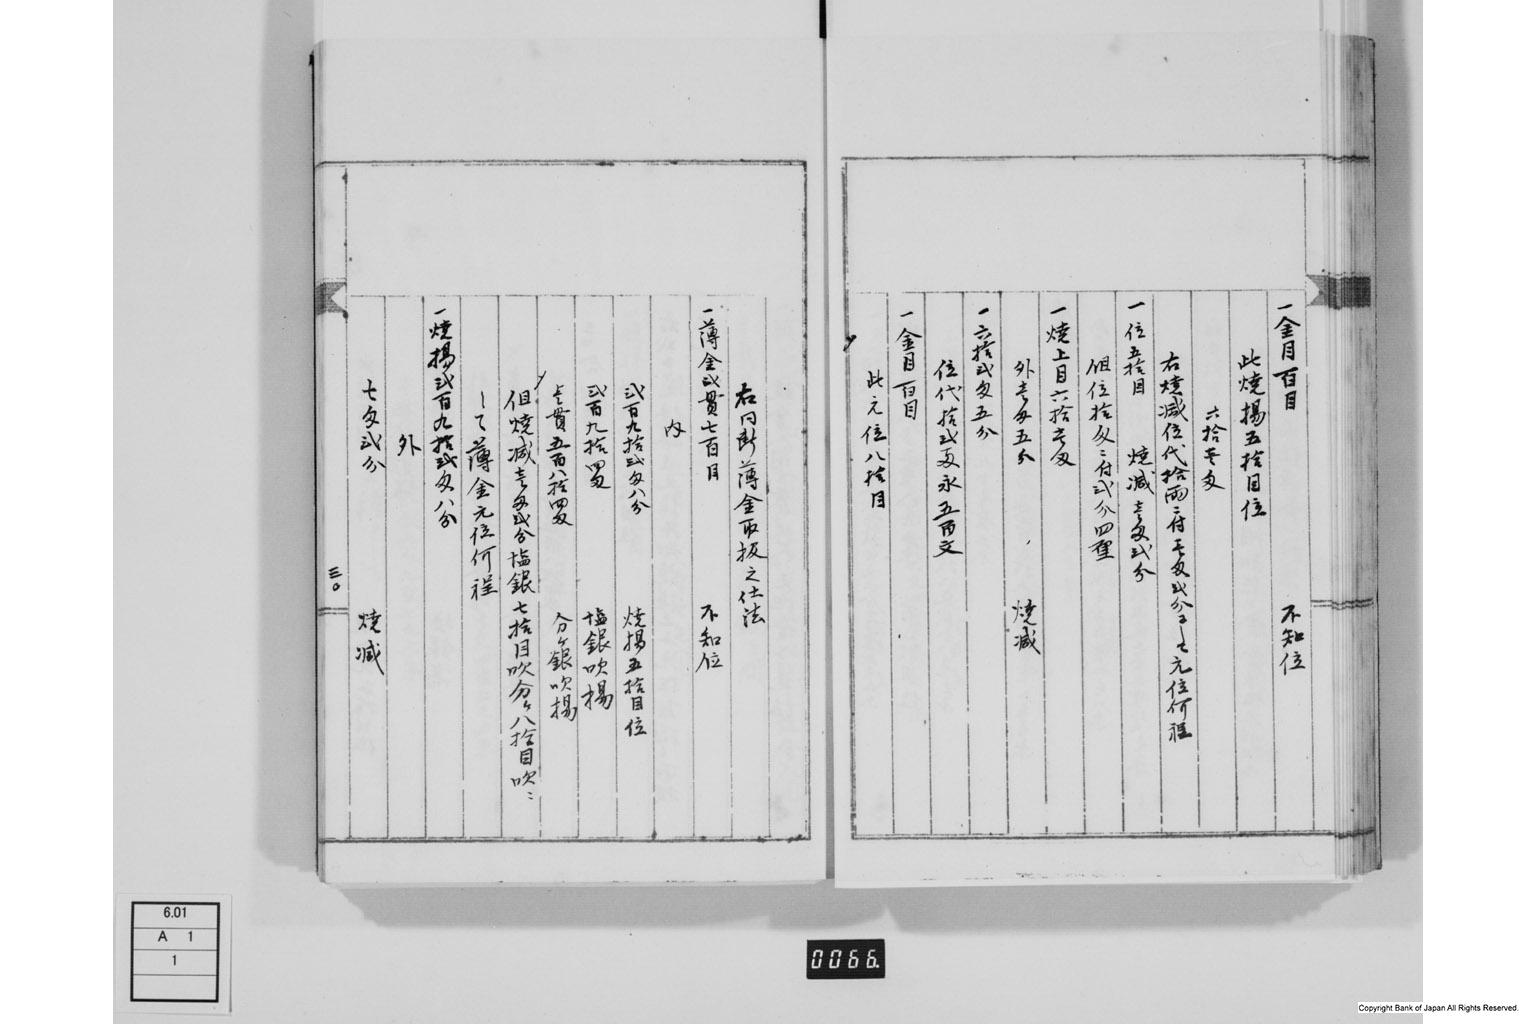 一金目百目 不知位
此焼揚五拾目位
六拾壱匁
右焼減位代拾両ニ付壱匁弐分ニして元位何程
一位五拾目 焼減壱匁弐分
但位拾匁ニ付弐分四厘
一焼上目六拾壱匁
外壱匁五分 焼減
一六拾弐匁五分
位代拾弐両永五百文
一金目百目
此元位八拾目
右同断薄金取扱之仕法
一薄金弐貫七百目 不知位
内
弐百九拾弐匁八分 焼揚五拾目位
弐百九拾四匁 塩銀吹揚
壱貫五百八拾四匁 分ケ銀吹揚
但焼減壱匁弐分塩銀七拾目吹分ケ八拾目吹ニ
して薄金元位何程
一焼揚弐百九拾弐匁八分
外
七匁弐分 焼減
三〇
6.01
A 1
1
0066.
Copyright Bank of Japan All Rights Reserved.